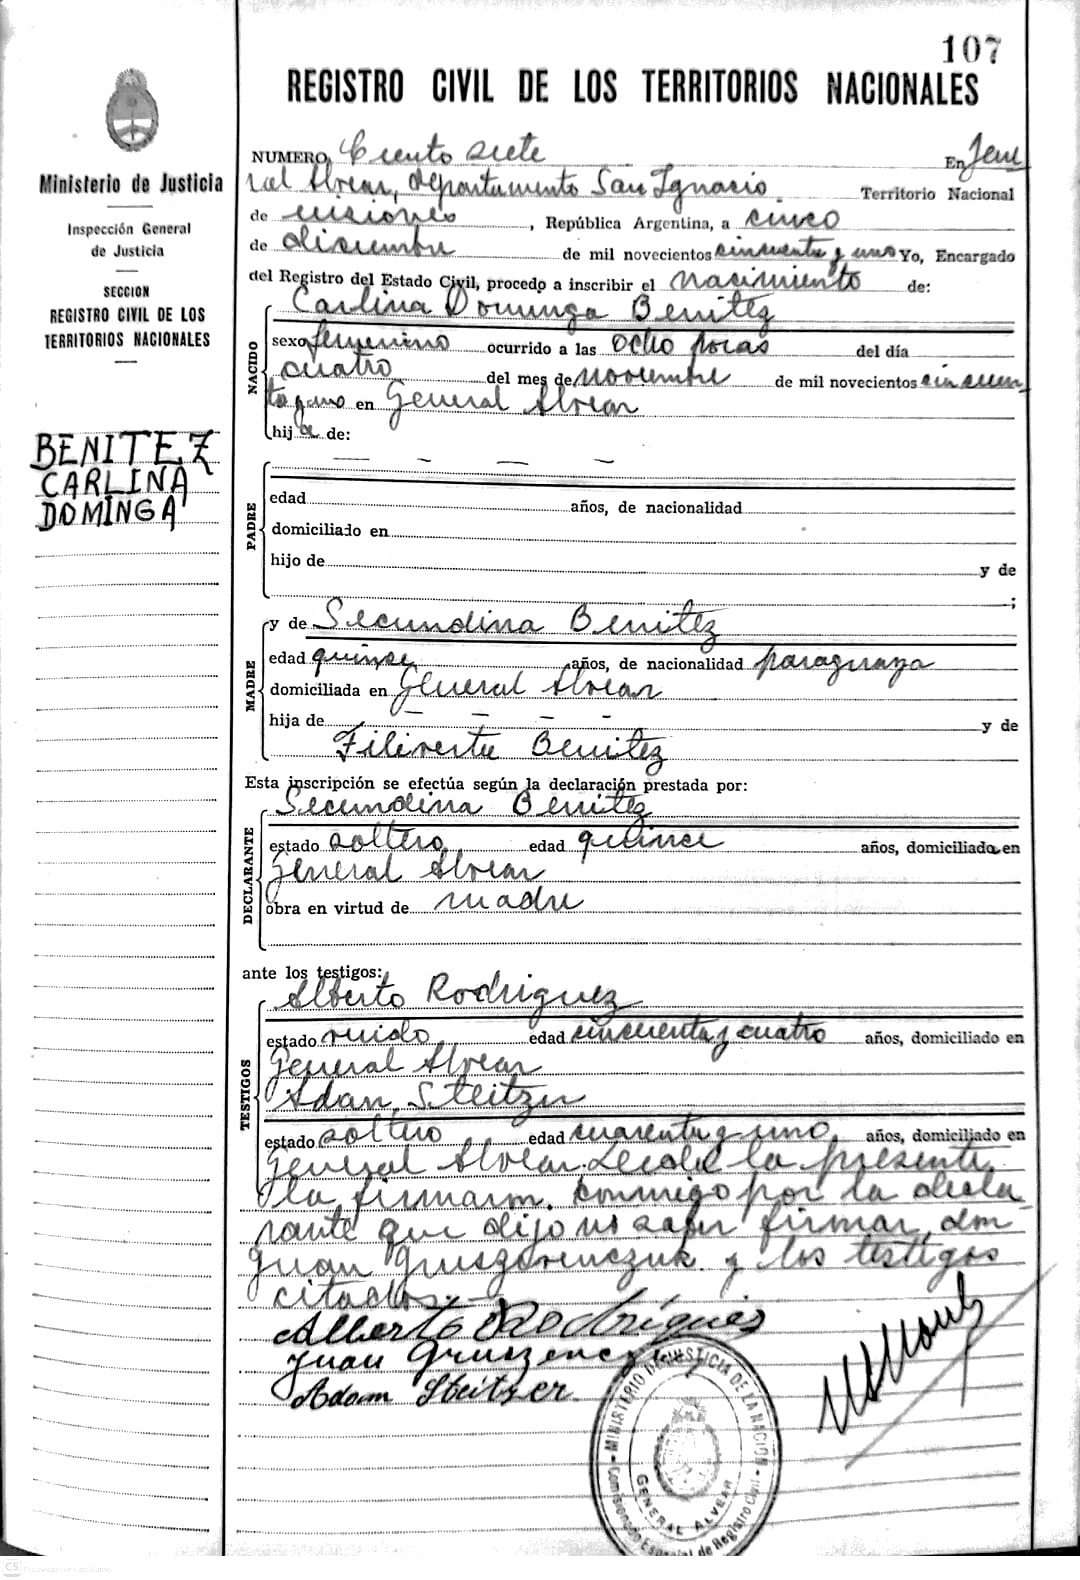 107
REGISTRO CIVIL DE LOS TERRITORIOS NACIONALES
Ministerio de Justicia
Inspección General
de Justicia
SECCION
REGISTRO CIVIL DE LOS
TERRITORIOS NACIONALES
BENITEZ
CARLINA
DOMINGA
NUMERO Ciento siete En Jene
ral Alvear, departamento San Ignacio Territorio Nacional
de misiones, República Argentina, a cinco
de disiembre de mil novecientos cincuenta y uno Yo, Encargado
del Registro del Estado Civil, procedo a inscribir el nacimiento de:
NACIDO
Carlina Dominga Benitez
sexo femenino ocurrido a las ocho horas del día
cuatro del mes de noviembre de mil novecientos cincuen
ta y uno en General Alvear
hija de:
PADRE
edad años, de nacionalidad
domiciliado en
hijo de y de
;
MADRE
y de Secundina Benitez
edad quinse años, de nacionalidad paraguaya
domiciliada en General Alvear
hija de y de
Filiverta Benitez
Esta inscripción se efectúa según la declaración prestada por:
DECLARANTE
Secundina Benitez
estado soltera edad quince años, domiciliada en
General Alvear
obra en virtud de madre
ante los testigos:
TESTIGOS
Alberto Rodriguez
estado viudo edad cincuenta y cuatro años, domiciliado en
General Alvear
Adan Steitzer
estado soltero edad cuarenta y uno años, domiciliado en
General Alvear. Leida la presente
la firmaron conmigo por la decla
rante que dijo no saber firmar, don
Juan y los testigos
citados.
Alberto Rodríguez
Juan
Adam Steitzer
MINISTERIO DE JUSTICIA DE LA NACION
GENERAL ALVEAR
de Registro Civil
CS